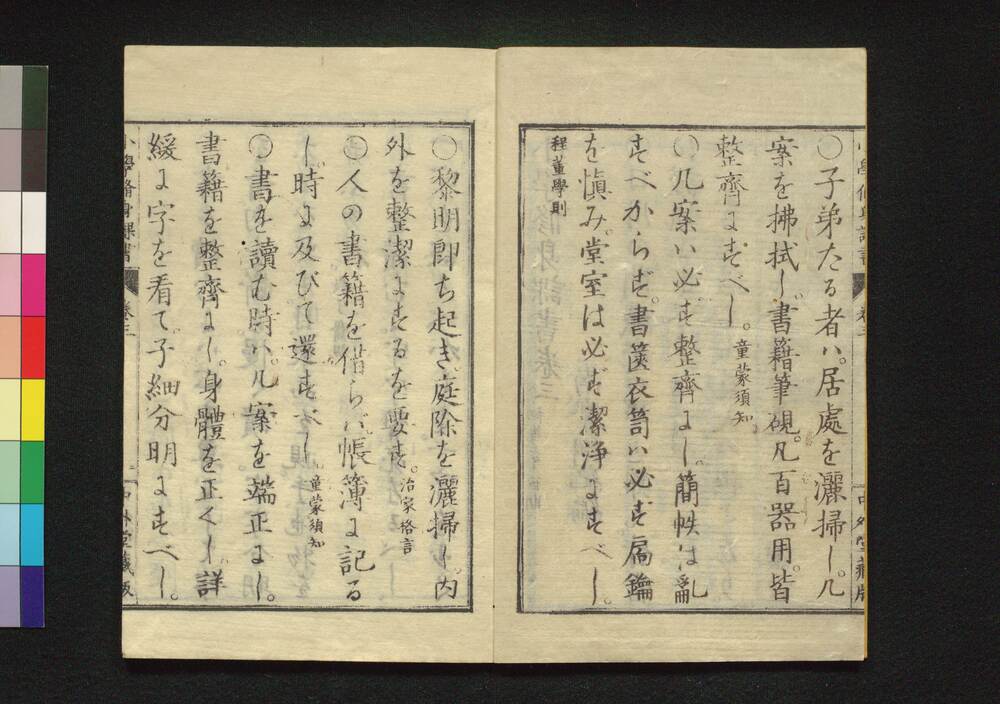 ○子弟たる者ハ。居處を灑掃し。几
案を拂拭し。書籍筆硯。凡百器用。皆
整齊にすべし。童蒙須知
○几案ハ必ず整齊にし。簡帙は亂
すべからず。書篋衣笥ハ必ず扃鑰
を愼み。堂室は必ず潔淨にすべし。
程董學則
○黎明即ち起き。庭除を灑掃し。内
外を整潔にするを要す。治家格言
○人の書籍を借らバ。帳簿に記る
し。時に及びて還すべし。童蒙須知
○書を讀む時ハ。几案を端正にし。
書籍を整齊にし。身體を正くし。詳
緩に字を看て。子細分明にすべし。
小學脩身課書
卷三
中外堂藏版